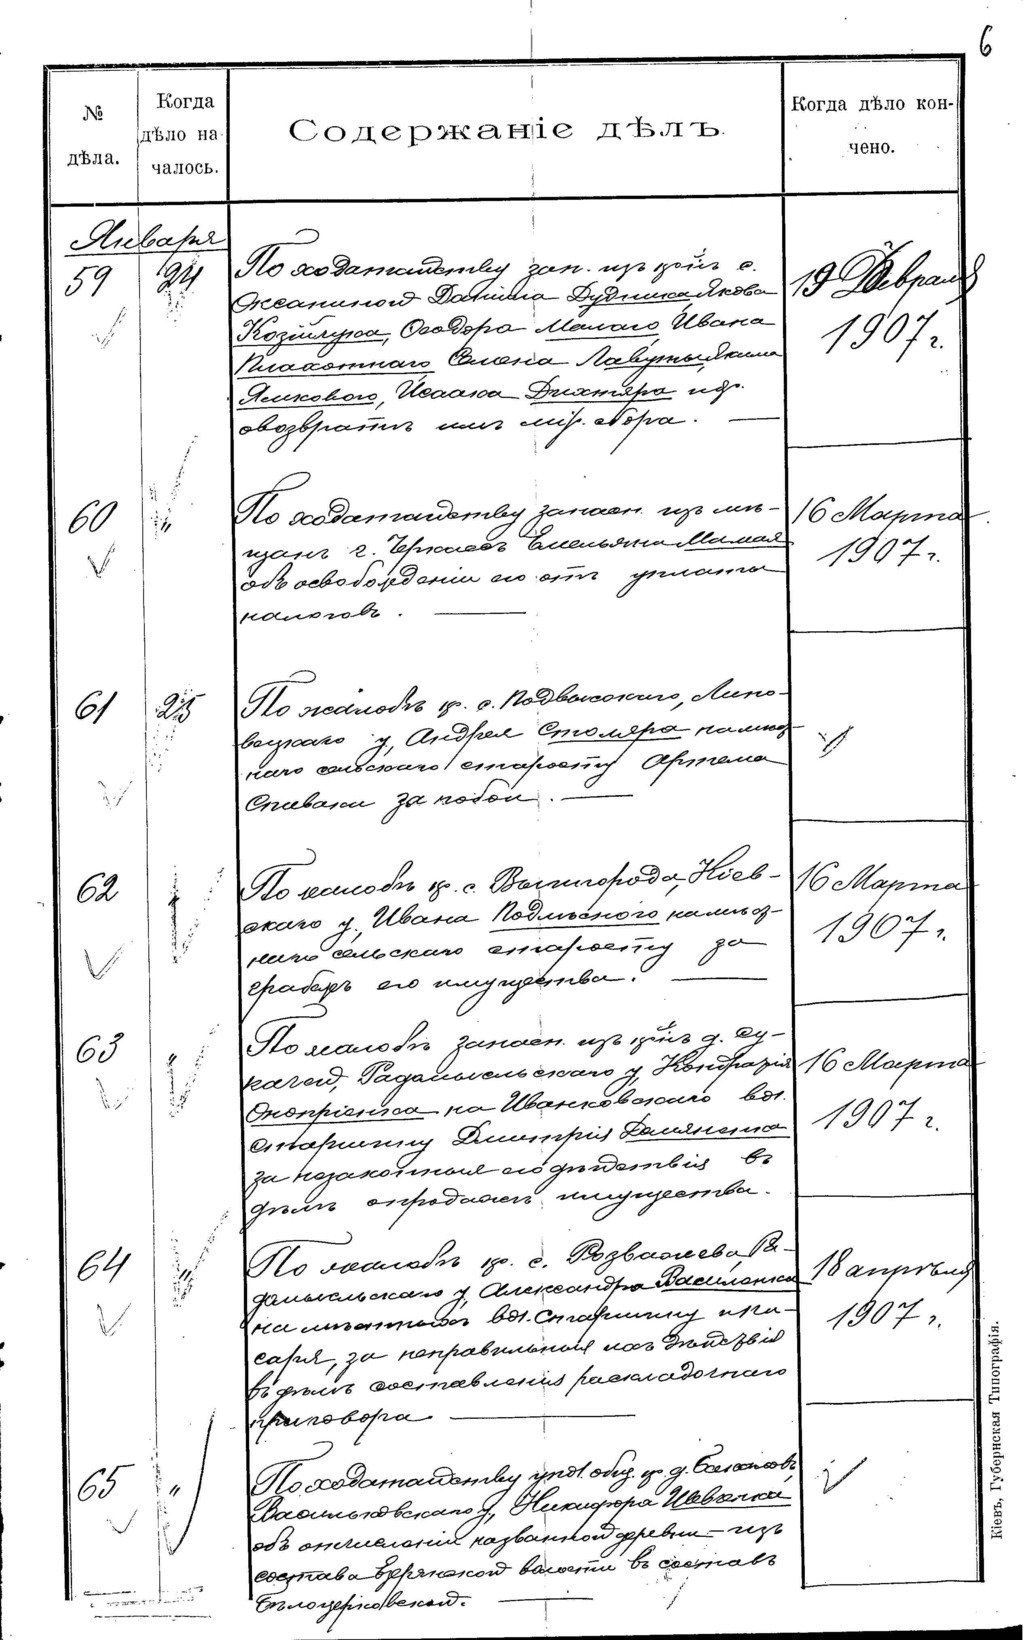 6
№
дѣла.
Когда
дѣло на-
чалось.
Содержаніе дѣлъ.
Когда дѣло кон-
чено.
Января
59 24
По ходатайству зап. изъ кр. с.
Даніила Дудника, Якова
Ѳеодора Малаго, Ивана
Плахотнаго
Исаака Дихтяра и др.
о возвратѣ имъ мір. сбора.
19 Февраля
1907 г.
60 "
По ходатайству запасн. изъ мѣ-
щанъ г. Черкассъ Емельяна Мамая
объ освобожденіи его отъ уплаты
налоговъ.
16 Марта
1907 г.
61 25
По жалобѣ кр. с. Подвысокаго, Липо-
вецкаго у., Андрея Столяра на мѣст-
наго сельскаго старосту Артема
Спивака за побои.
62 "
По жалобѣ кр. с. Вышгорода, Кіев-
скаго у., Ивана Подлѣснаго на мѣст-
наго сельскаго старосту за
грабежъ его имущества.
16 Марта
1907 г.
63 "
По жалобѣ запасн. изъ кр. д. Су-
качей, Радомысльскаго у., Кондратія
Оноприенка на Иванковскаго вол.
старшину Дмитрія Демяненка
за незаконныя его дѣйствія въ
дѣлѣ о продажѣ имущества.
16 Марта
1907 г.
64 "
По жалобѣ кр. с. Розважева, Ра-
домысльскаго у., Александра Василенка
на мѣстныхъ вол. старшину и пи-
саря, за неправильныя ихъ дѣйствія
въ дѣлѣ составленія раскладочнаго
приговора
18 апрѣля
1907 г.
65 "
По ходатайству упол. общ. кр. д.
Васильковскаго у., Никифора Шевченка
объ отчисленіи названной деревни изъ
состава Езерянской волости въ составъ
Бѣлоцерковской.
Кіевъ, Губернская Типографія.